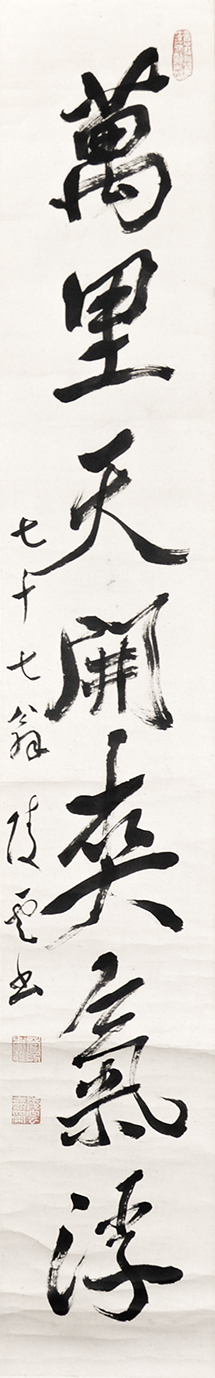 萬里天開爽氣浮
七十七翁陵雲書